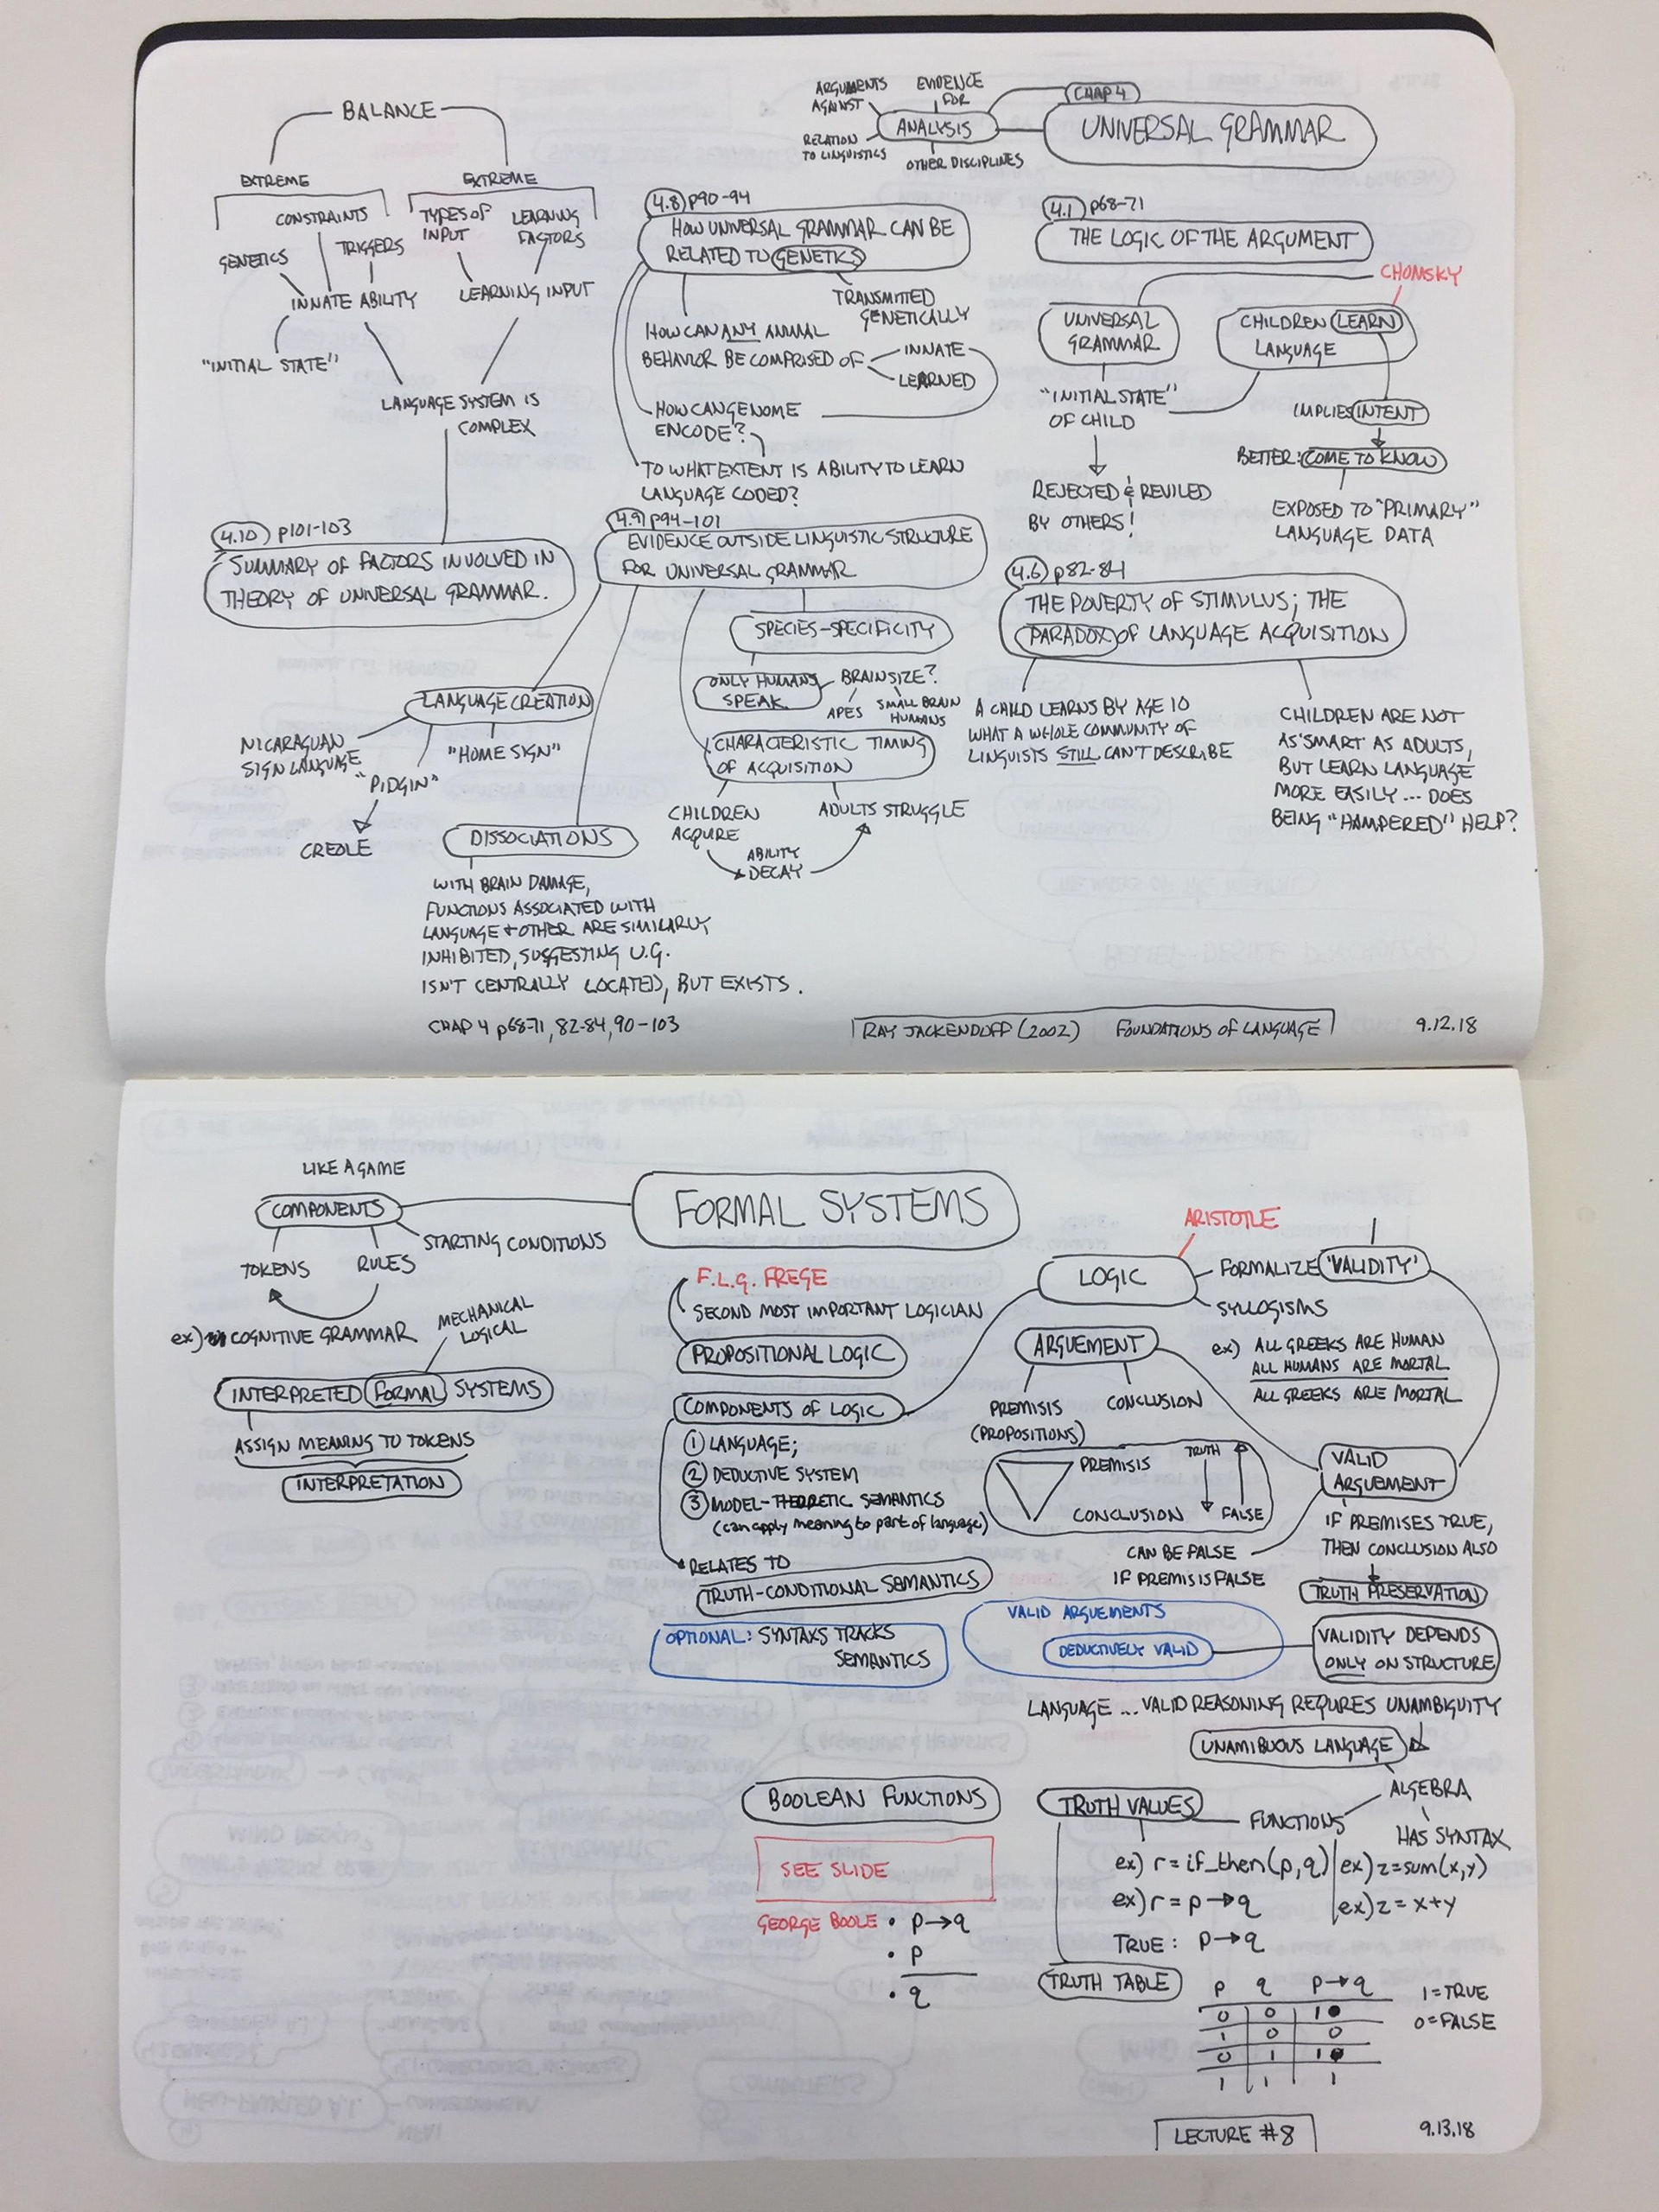 BALANCE
EXTREME
EXTREME
CONSTRAINTS
GENETICS
TRIGGERS
TYPES OF
INPUT
LEARNING
FACTORS
INNATE ABILITY
LEARNING INPUT
"INITIAL STATE"
LANGUAGE SYSTEM IS
COMPLEX
4.10 p101-103
SUMMARY OF FACTORS INVOLVED IN
THEORY OF UNIVERSAL GRAMMAR.
ARGUMENTS
AGAINST
EVIDENCE
FOR
ANALYSIS
RELATION
TO LINGUISTICS
OTHER DISCIPLINES
CHAP 4
UNIVERSAL GRAMMAR
4.8 p90-94
HOW UNIVERSAL GRAMMAR CAN BE
RELATED TO GENETICS
TRANSMITTED
GENETICALLY
HOW CAN ANY ANIMAL
BEHAVIOR BE COMPRISED OF
INNATE
LEARNED
HOW CAN GENOME
ENCODE?
TO WHAT EXTENT IS ABILITY TO LEARN
LANGUAGE CODED?
4.1 p68-71
THE LOGIC OF THE ARGUMENT
CHOMSKY
UNIVERSAL
GRAMMAR
CHILDREN LEARN
LANGUAGE
"INITIAL STATE"
OF CHILD
REJECTED & REVILED
BY OTHERS!
IMPLIES INTENT
BETTER: COME TO KNOW
EXPOSED TO "PRIMARY"
LANGUAGE DATA
4.9 p94-101
EVIDENCE OUTSIDE LINGUISTIC STRUCTURE
FOR UNIVERSAL GRAMMAR
SPECIES-SPECIFICITY
ONLY HUMANS
SPEAK
BRAIN SIZE?
APES
SMALL BRAIN
HUMANS
CHARACTERISTIC TIMING
OF ACQUISITION
CHILDREN
ACQURE
ADULTS STRUGGLE
ABILITY
DECAY
LANGUAGE CREATION
NICARAGUAN
SIGN LANGUAGE
"HOME SIGN"
"PIDGIN"
CREOLE
DISSOCIATIONS
WITH BRAIN DAMAGE,
FUNCTIONS ASSOCIATED WITH
LANGUAGE + OTHER ARE SIMILARLY
INHIBITED, SUGGESTING U.G.
ISN'T CENTRALLY LOCATED, BUT EXISTS.
4.6 p82-84
THE POVERTY OF STIMULUS; THE
PARADOX OF LANGUAGE ACQUISITION
A CHILD LEARNS BY AGE 10
WHAT A WHOLE COMMUNITY OF
LINGUISTS STILL CAN'T DESCRIBE
CHILDREN ARE NOT
AS "SMART" AS ADULTS,
BUT LEARN LANGUAGE
MORE EASILY... DOES
BEING "HAMPERED" HELP?
CHAP 4 p68-71, 82-84, 90-103
RAY JACKENDOFF (2002) FOUNDATIONS OF LANGUAGE
9.12.18
LIKE A GAME
COMPONENTS
TOKENS
RULES
STARTING CONDITIONS
ex) COGNITIVE GRAMMAR
MECHANICAL
LOGICAL
INTERPRETED FORMAL SYSTEMS
ASSIGN MEANING TO TOKENS
INTERPRETATION
FORMAL SYSTEMS
F.L.G. FREGE
SECOND MOST IMPORTANT LOGICIAN
PROPOSITIONAL LOGIC
COMPONENTS OF LOGIC
1 LANGUAGE;
2 DEDUCTIVE SYSTEM
3 MODEL-THEORETIC SEMANTICS
(can apply meaning to part of language)
RELATES TO
TRUTH-CONDITIONAL SEMANTICS
OPTIONAL: SYNTAXS TRACKS
SEMANTICS
ARISTOTLE
LOGIC
FORMALIZE 'VALIDITY'
SYLLOGISMS
ex) ALL GREEKS ARE HUMAN
ALL HUMANS ARE MORTAL
ALL GREEKS ARE MORTAL
ARGUEMENT
PREMISIS
(PROPOSITIONS)
CONCLUSION
PREMISIS
CONCLUSION
TRUTH
FALSE
VALID
ARGUEMENT
IF PREMISES TRUE,
THEN CONCLUSION ALSO
TRUTH PRESERVATION
CAN BE FALSE
IF PREMIS IS FALSE
VALID ARGUEMENTS
DEDUCTIVELY VALID
VALIDITY DEPENDS
ONLY ON STRUCTURE
LANGUAGE ... VALID REASONING REQUIRES UNAMBIGUITY
UNAMIBUOUS LANGUAGE
ALGEBRA
HAS SYNTAX
BOOLEAN FUNCTIONS
SEE SLIDE
GEORGE BOOLE
• p→q
• p
• q
TRUTH VALUES
FUNCTIONS
ex) r = if_then(p,q)
ex) z=sum(x,y)
ex) r = p→q
ex) z = x+y
TRUE: p→q
TRUTH TABLE
p q p→q
0 0 1
1 0 0
0 1 1
1 1 1
1=TRUE
0=FALSE
LECTURE #8
9.13.18